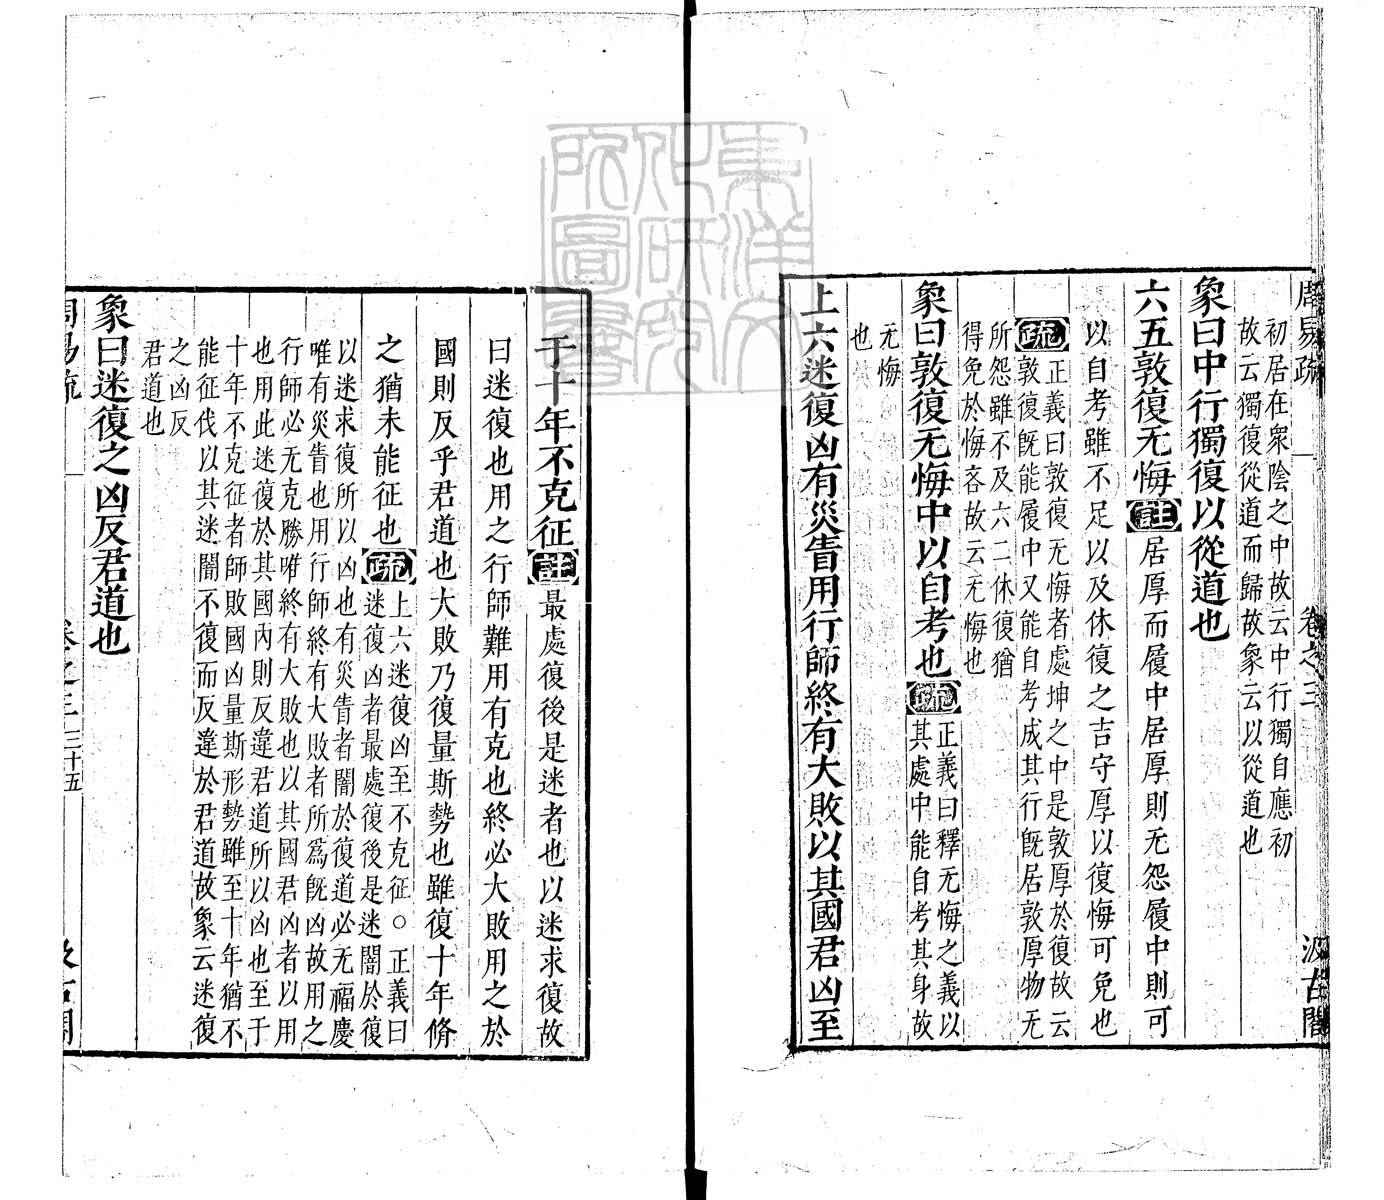 周易疏 卷之三 汲古閣
初居在衆陰之中故云中行獨自應初
故云獨復從道而歸故象云以從道也
象曰中行獨復以從道也
六五敦復无悔註居厚而履中居厚則无怨履中則可
以自考雖不足以及休復之吉守厚以復悔可免也
疏正義曰敦復无悔者處坤之中是敦厚於復故云
敦復旣能履中又能自考成其行旣居敦厚物无
所怨雖不及六二休復猶
得免於悔吝故云无悔也
象曰敦復无悔中以自考也疏正義曰釋无悔之義以
其處中能自考其身故
无悔
也
上六迷復凶有災眚用行師終有大敗以其國君凶至
于十年不克征註最處復後是迷者也以迷求復故
曰迷復也用之行師難用有克也終必大敗用之於
國則反乎君道也大敗乃復量斯勢也雖復十年脩
之猶未能征也疏上六迷復凶至不克征○正義曰
迷復凶者最處復後是迷闇於復
以迷求復所以凶也有災眚者闇於復道必无福慶
唯有災眚也用行師終有大敗者所爲旣凶故用之
行師必无克勝唯終有大敗也以其國君凶者以用
也用此迷復於其國內則反違君道所以凶也至于
十年不克征者師敗國凶量斯形勢雖至十年猶不
能征伐以其迷闇不復而反違於君道故象云迷復
之凶反
君道也
象曰迷復之凶反君道也
周易疏 卷之三 三十五 汲古閣
東洋文
化研究
所圖書